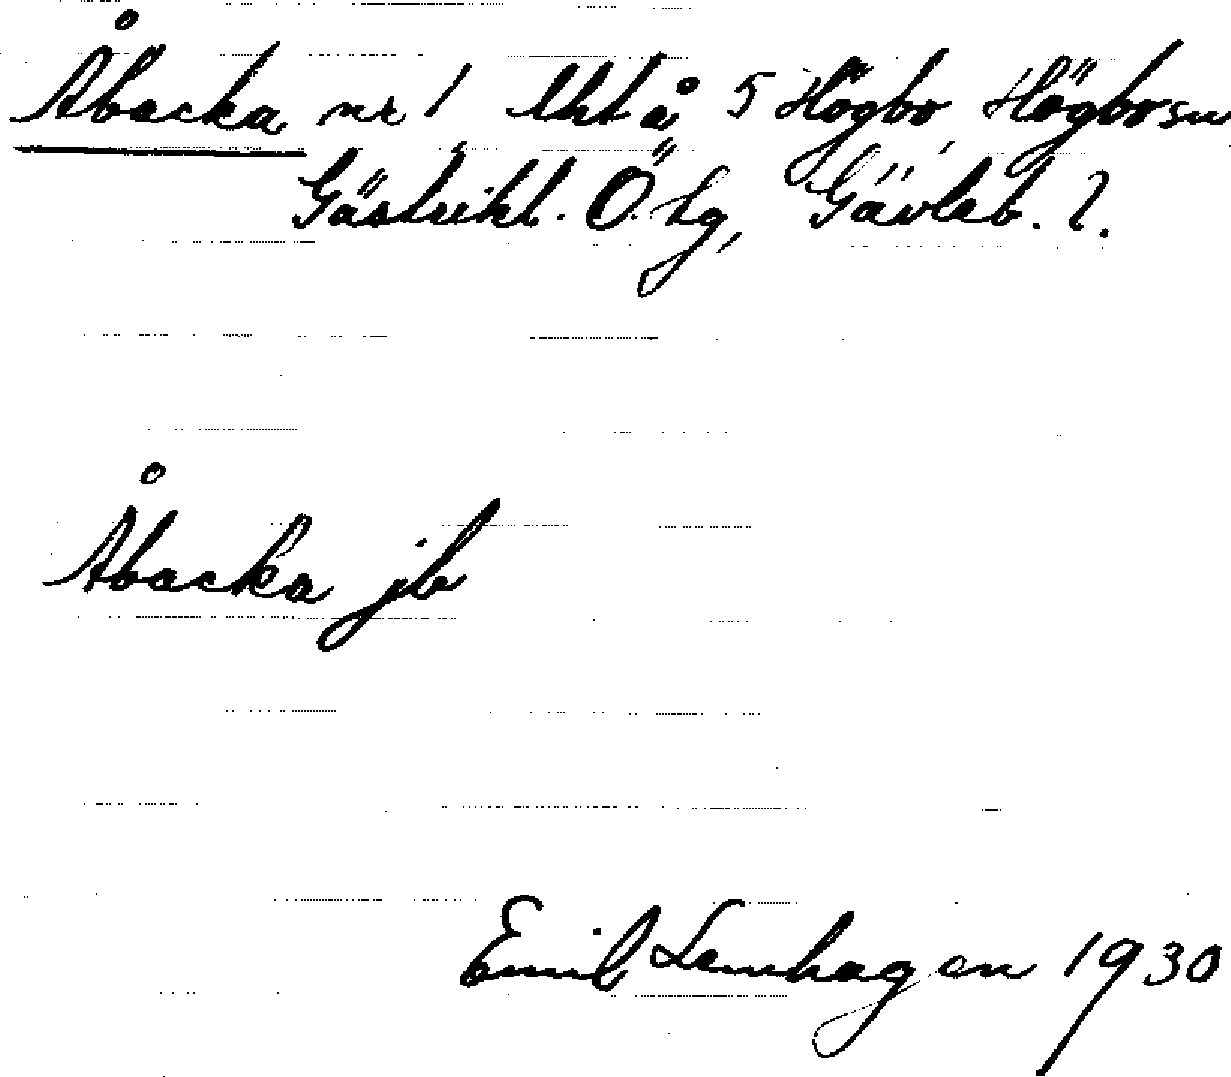 Åbacka nr 1 Mtl å 5 Högbo, Högbo sn
Gästrikl. Ö. Tg, Gävleb. l.
Åbacka jb
Emil Lamhagen 1930